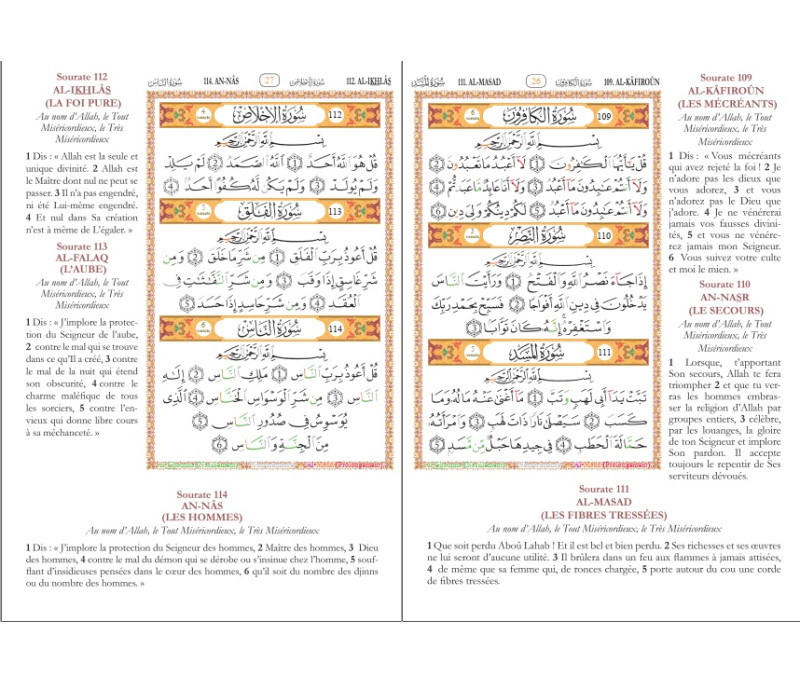 Sourate 112
AL-IKHLÂS
(LA FOI PURE)
Au nom d'Allah, le Tout
Miséricordieux, le Très
Miséricordieux
1 Dis : « Allah est la seule et
unique divinité. 2 Allah est
le Maître dont nul ne peut se
passer. 3 Il n'a pas engendré,
ni été Lui-même engendré.
4 Et nul dans Sa création
n'est à même de L'égaler. »
Sourate 113
AL-FALAQ
(L'AUBE)
Au nom d'Allah, le Tout
Miséricordieux, le Très
Miséricordieux
1 Dis : « J'implore la protec-
tion du Seigneur de l'aube,
2 contre le mal qui se trouve
dans ce qu'Il a créé, 3 contre
le mal de la nuit qui étend
son obscurité, 4 contre le
charme maléfique de tous
les sorciers, 5 contre l'en-
vieux qui donne libre cours
à sa méchanceté. »
سُورَةُ النَّاسِ 114. AN-NÂS 27 سُورَةُ الإِخْلَاصِ 112. AL-IKHLÂS
4 سُورَةُ الإِخْلَاصِ 112
بِسْمِ اللَّهِ الرَّحْمَٰنِ الرَّحِيمِ
قُلْ هُوَ اللَّهُ أَحَدٌ ① اللَّهُ الصَّمَدُ ② لَمْ يَلِدْ
وَلَمْ يُولَدْ ③ وَلَمْ يَكُن لَّهُ كُفُوًا أَحَدٌ ④
5 سُورَةُ الْفَلَقِ 113
بِسْمِ اللَّهِ الرَّحْمَٰنِ الرَّحِيمِ
قُلْ أَعُوذُ بِرَبِّ الْفَلَقِ ① مِن شَرِّ مَا خَلَقَ ② وَمِن
شَرِّ غَاسِقٍ إِذَا وَقَبَ ③ وَمِن شَرِّ النَّفَّاثَاتِ فِي
الْعُقَدِ ④ وَمِن شَرِّ حَاسِدٍ إِذَا حَسَدَ ⑤
6 سُورَةُ النَّاسِ 114
بِسْمِ اللَّهِ الرَّحْمَٰنِ الرَّحِيمِ
قُلْ أَعُوذُ بِرَبِّ النَّاسِ ① مَلِكِ النَّاسِ ② إِلَٰهِ
النَّاسِ ③ مِن شَرِّ الْوَسْوَاسِ الْخَنَّاسِ ④ الَّذِي
يُوَسْوِسُ فِي صُدُورِ النَّاسِ ⑤
مِنَ الْجِنَّةِ وَالنَّاسِ ⑥
Sourate 114
AN-NÂS
(LES HOMMES)
Au nom d'Allah, le Tout Miséricordieux, le Très Miséricordieux
1 Dis : « J'implore la protection du Seigneur des hommes, 2 Maître des hommes, 3 Dieu
des hommes, 4 contre le mal du démon qui se dérobe ou s'insinue chez l'homme, 5 souf-
flant d'insidieuses pensées dans le cœur des hommes, 6 qu'il soit du nombre des djinns
ou du nombre des hommes. »
سُورَةُ الْمَسَدِ 111. AL-MASAD 26 سُورَةُ الْكَافِرُونَ 109. AL-KÂFIROÛN
6 سُورَةُ الْكَافِرُونَ 109
بِسْمِ اللَّهِ الرَّحْمَٰنِ الرَّحِيمِ
قُلْ يَا أَيُّهَا الْكَافِرُونَ ① لَا أَعْبُدُ مَا تَعْبُدُونَ ②
وَلَا أَنتُمْ عَابِدُونَ مَا أَعْبُدُ ③ وَلَا أَنَا عَابِدٌ مَّا عَبَدتُّمْ ④
وَلَا أَنتُمْ عَابِدُونَ مَا أَعْبُدُ ⑤ لَكُمْ دِينُكُمْ وَلِيَ دِينِ ⑥
3 سُورَةُ النَّصْرِ 110
بِسْمِ اللَّهِ الرَّحْمَٰنِ الرَّحِيمِ
إِذَا جَاءَ نَصْرُ اللَّهِ وَالْفَتْحُ ① وَرَأَيْتَ النَّاسَ
يَدْخُلُونَ فِي دِينِ اللَّهِ أَفْوَاجًا ② فَسَبِّحْ بِحَمْدِ رَبِّكَ
وَاسْتَغْفِرْهُ إِنَّهُ كَانَ تَوَّابًا ③
5 سُورَةُ الْمَسَدِ 111
بِسْمِ اللَّهِ الرَّحْمَٰنِ الرَّحِيمِ
تَبَّتْ يَدَا أَبِي لَهَبٍ وَتَبَّ ① مَا أَغْنَىٰ عَنْهُ مَالُهُ وَمَا
كَسَبَ ② سَيَصْلَىٰ نَارًا ذَاتَ لَهَبٍ ③ وَامْرَأَتُهُ
حَمَّالَةَ الْحَطَبِ ④ فِي جِيدِهَا حَبْلٌ مِّن مَّسَدٍ ⑤
Sourate 109
AL-KÂFIROÛN
(LES MÉCRÉANTS)
Au nom d'Allah, le Tout
Miséricordieux, le Très
Miséricordieux
1 Dis : « Vous mécréants
qui avez rejeté la foi ! 2 Je
n'adore pas les dieux que
vous adorez, 3 et vous
n'adorez pas le Dieu que
j'adore. 4 Je ne vénérerai
jamais vos fausses divini-
tés, 5 et vous ne vénére-
rez jamais mon Seigneur.
6 Vous suivez votre culte
et moi le mien. »
Sourate 110
AN-NASR
(LE SECOURS)
Au nom d'Allah, le Tout
Miséricordieux, le Très
Miséricordieux
1 Lorsque, t'apportant
Son secours, Allah te fera
triompher 2 et que tu ver-
ras les hommes embras-
ser la religion d'Allah par
groupes entiers, 3 célèbre,
par les louanges, la gloire
de ton Seigneur et implore
Son pardon. Il accepte
toujours le repentir de Ses
serviteurs dévoués.
Sourate 111
AL-MASAD
(LES FIBRES TRESSÉES)
Au nom d'Allah, le Tout Miséricordieux, le Très Miséricordieux
1 Que soit perdu Aboû Lahab ! Et il est bel et bien perdu. 2 Ses richesses et ses œuvres
ne lui seront d'aucune utilité. 3 Il brûlera dans un feu aux flammes à jamais attisées,
4 de même que sa femme qui, de ronces chargée, 5 porte autour du cou une corde
de fibres tressées.